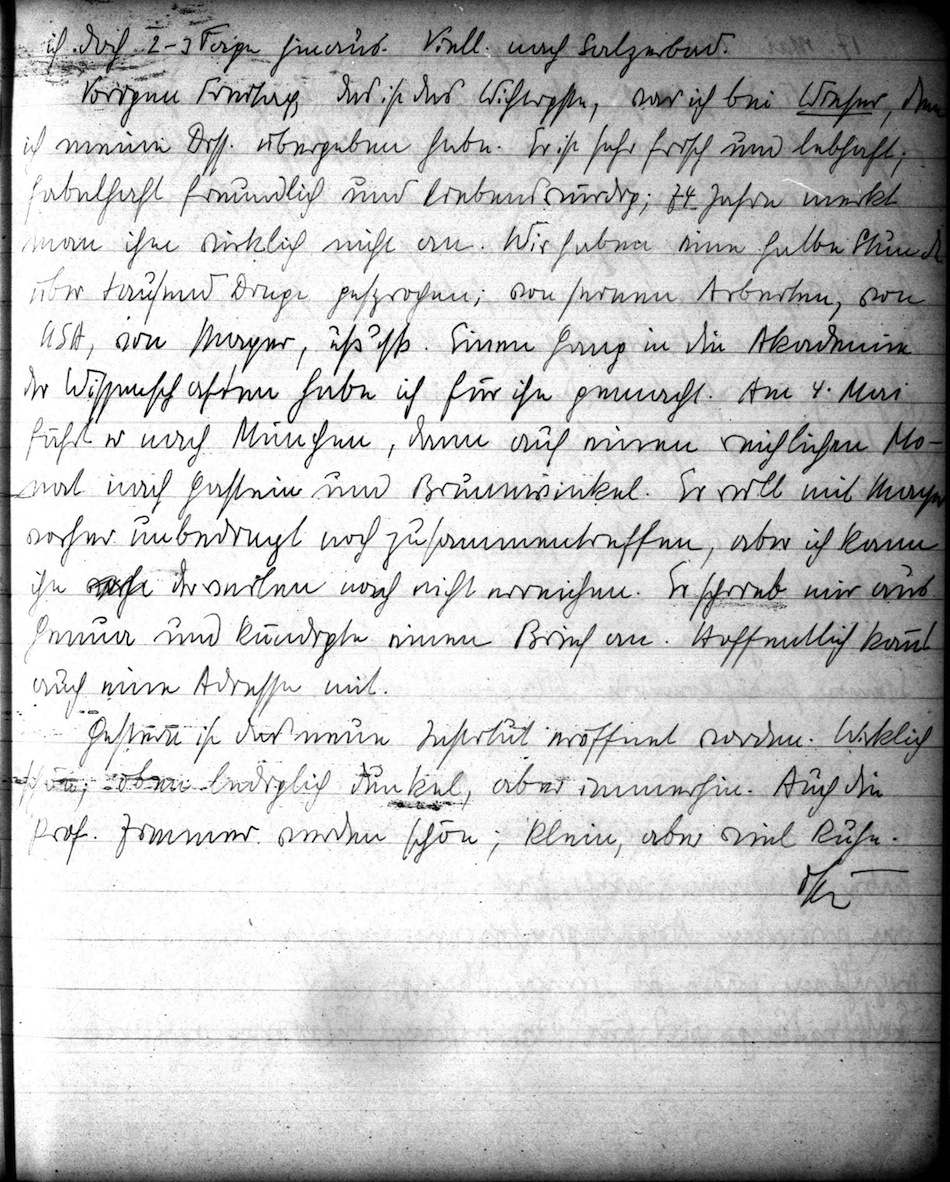 ich doch 2-3 Tage hinaus. Viell. nach Salzerbad.
Vorigen Freitag, das ist das Wichtigste, war ich bei Wieser, dem
ich meine Diss. übergeben habe. Er ist sehr frisch und lebhaft;
fabelhaft freundlich und liebenswürdig; 74 Jahre merkt
man ihm wirklich nicht an. Wir haben eine halbe Stunde
über tausend Dinge gesprochen; von seinen Arbeiten, von
USA, von Mayer, usw. usw. Einen Gang in die Akademie
der Wissenschaften habe ich für ihn gemacht. Am 4. Mai
fährt er nach München, dann auf einen reichlichen Mo-
nat nach Gastein und Brunnwinkel. Er will mit Mayer
vorher unbedingt noch zusammentreffen, aber ich kann
ihn derweilen noch nicht erreichen. Er schrieb mir aus
Genua und kündigte einen Brief an. Hoffentlich kommt
auch eine Adresse mit.
Gestern ist das neue Institut eröffnet worden. Wirklich
schön; lediglich dunkel, aber immerhin. Auch die
Prof. Zimmer werden schön; klein, aber viel Ruhe.